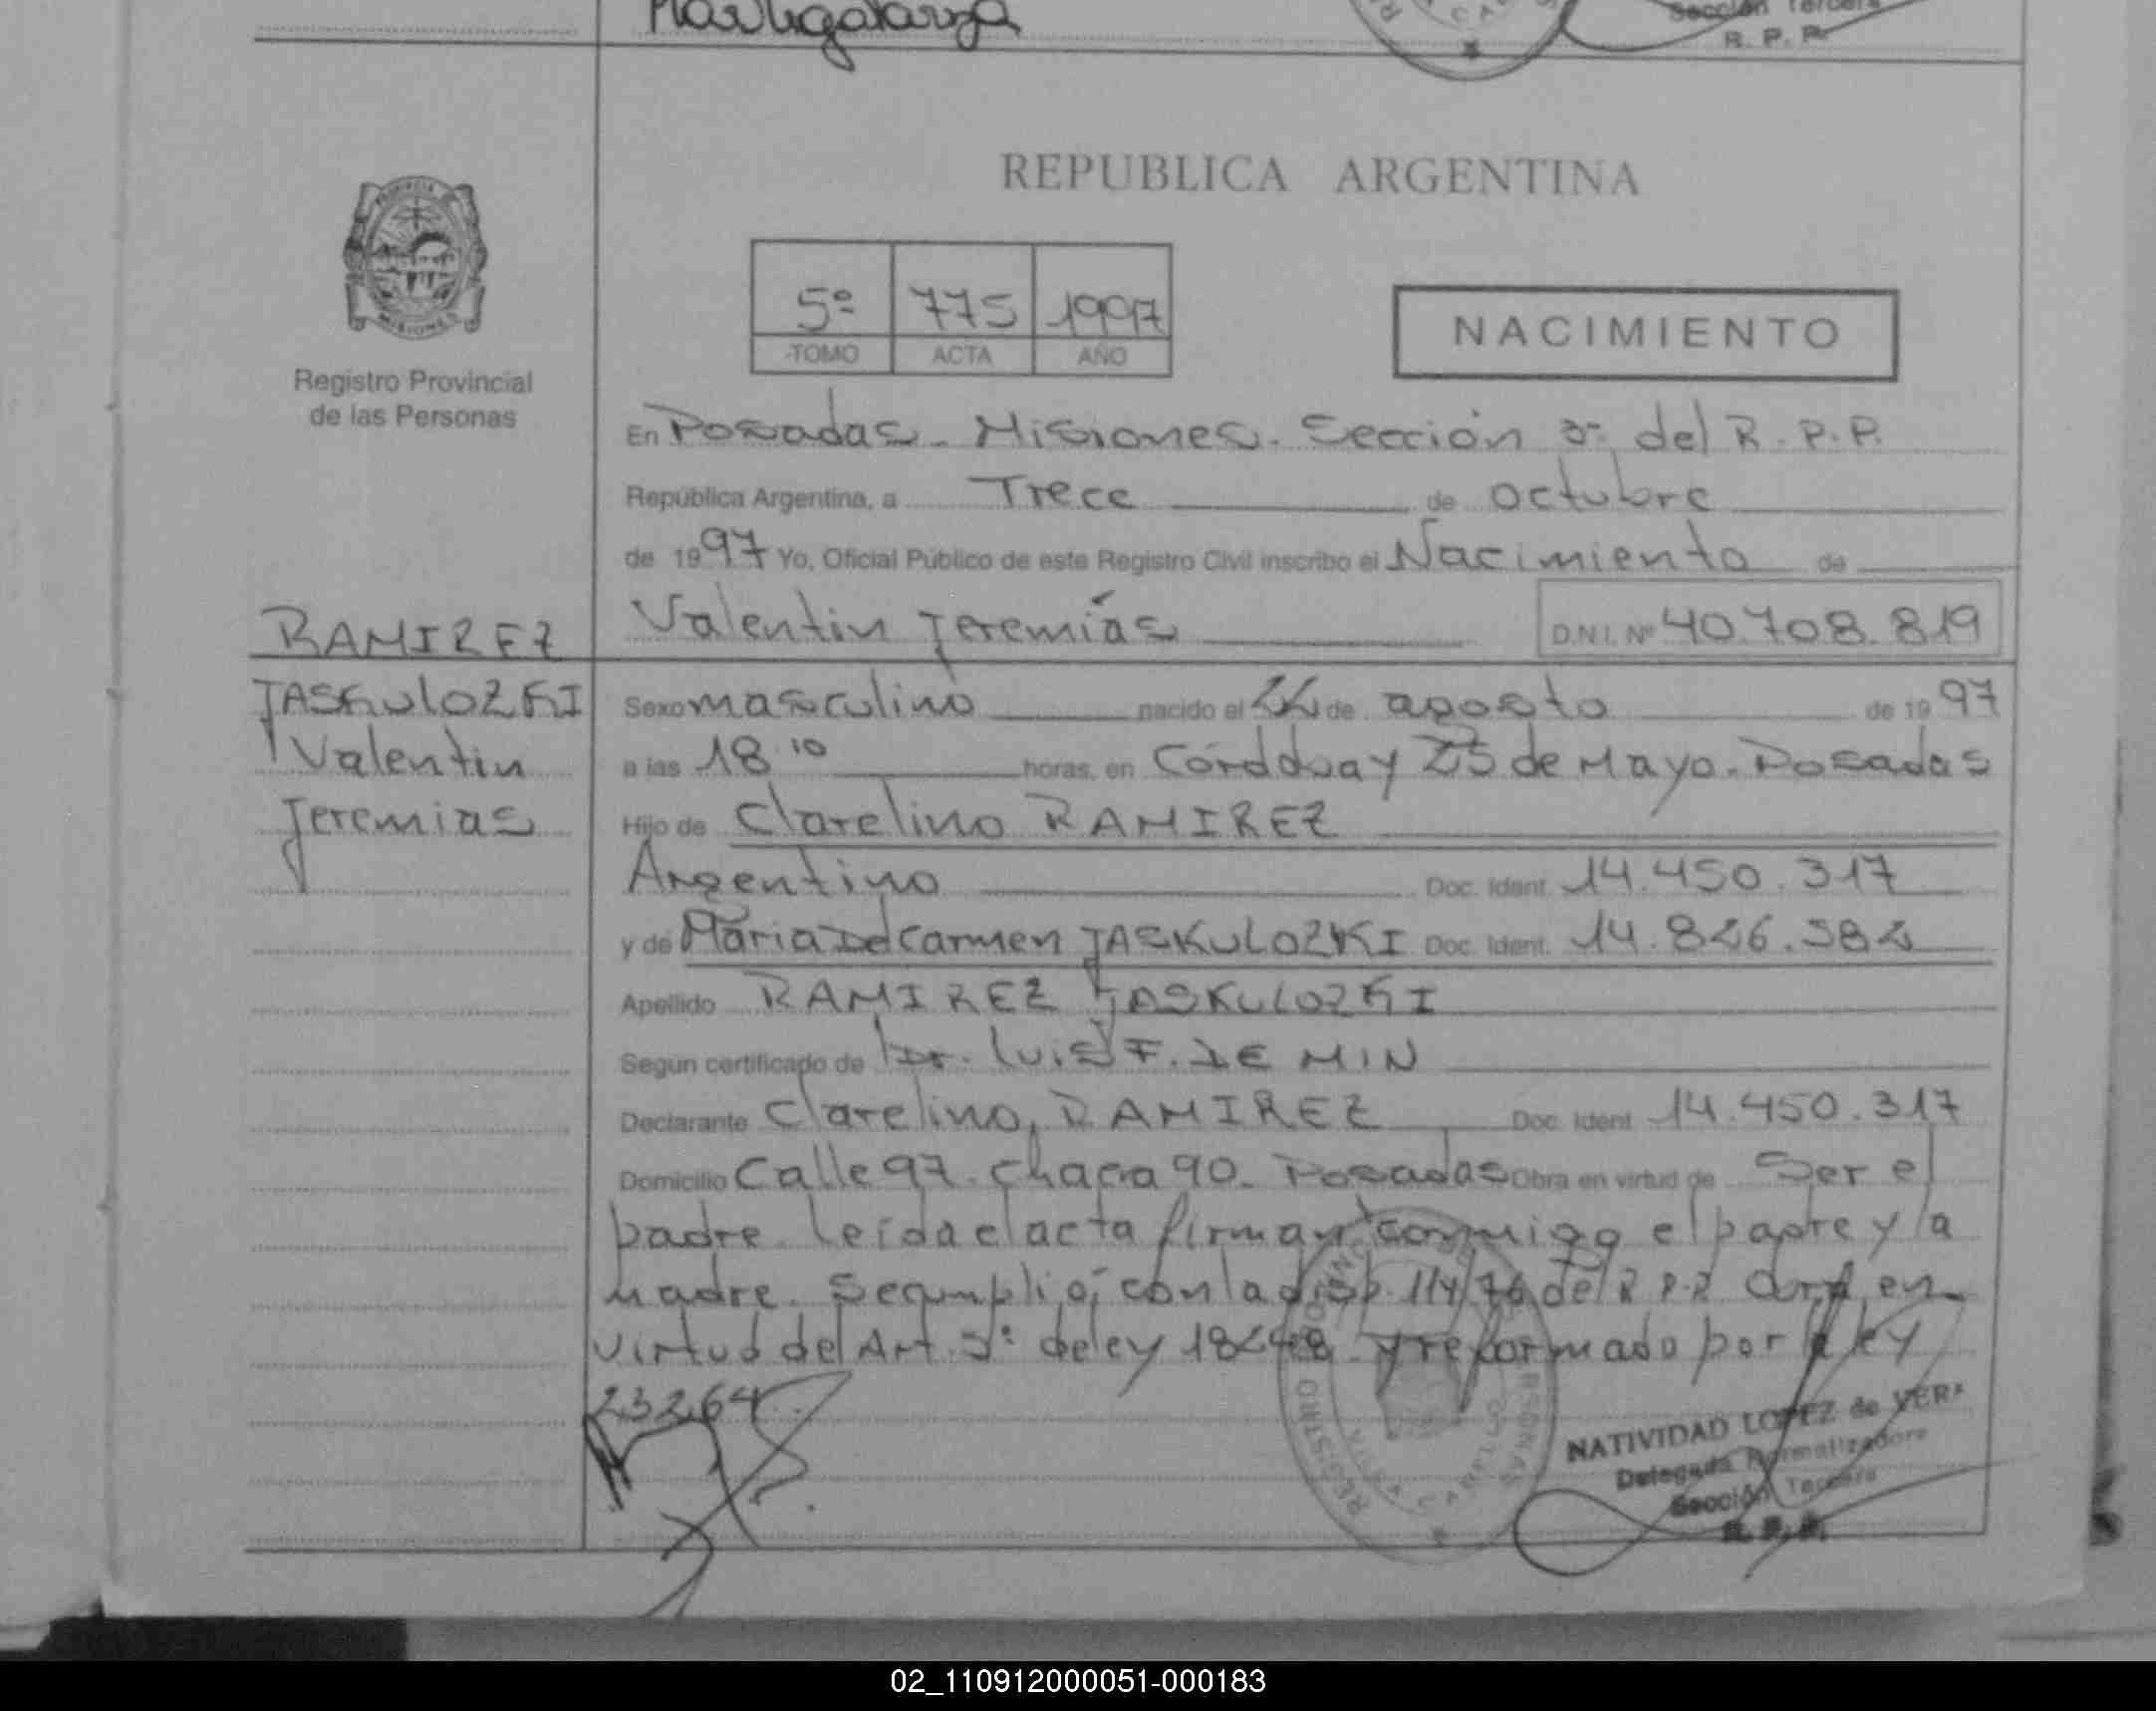 Sección Tercera
R. P. P.
REPUBLICA ARGENTINA
PROVINCIA
MISIONES
Registro Provincial
de las Personas
5º 775 1997
TOMO ACTA AÑO
NACIMIENTO
En Posadas. Misiones. Sección 3ª del R.P.P.
República Argentina, a Trece de octubre
de 1997 Yo, Oficial Público de este Registro Civil inscribo el Nacimiento de
RAMIREZ
Valentin Jeremías
D.N.I. Nº 40.708.819
JASKulOZKI
Valentin
Jeremias
Sexo masculino nacido el 22 de agosto de 1997
a las 18 10 horas, en Córdoba y 25 de Mayo. Posadas
Hijo de Clarelino RAMIREZ
Argentino Doc. Ident. 14.450.317
y de Maria Del Carmen JASKULOZKI Doc. Ident. 14.826.582
Apellido RAMIREZ JASKULOZKI
Según certificado de Dr. Luis F. DE MIN
Declarante Clarelino RAMIREZ Doc. Ident 14.450.317
Domicilio Calle 97. Chacra 90. Posadas Obra en virtud de Ser el
padre. Leída el acta firman conmigo el padre y la
madre. Se cumplió con la disp. 114/76 del R.P.P. en
virtud del Art. 5º de ley 18248 y reformado por ley
23264.
REGISTRO PERSONAS
NATIVIDAD LOPEZ de VERA
Delegada Normalizadora
Sección Tercera
R. P. P.
02_110912000051-000183